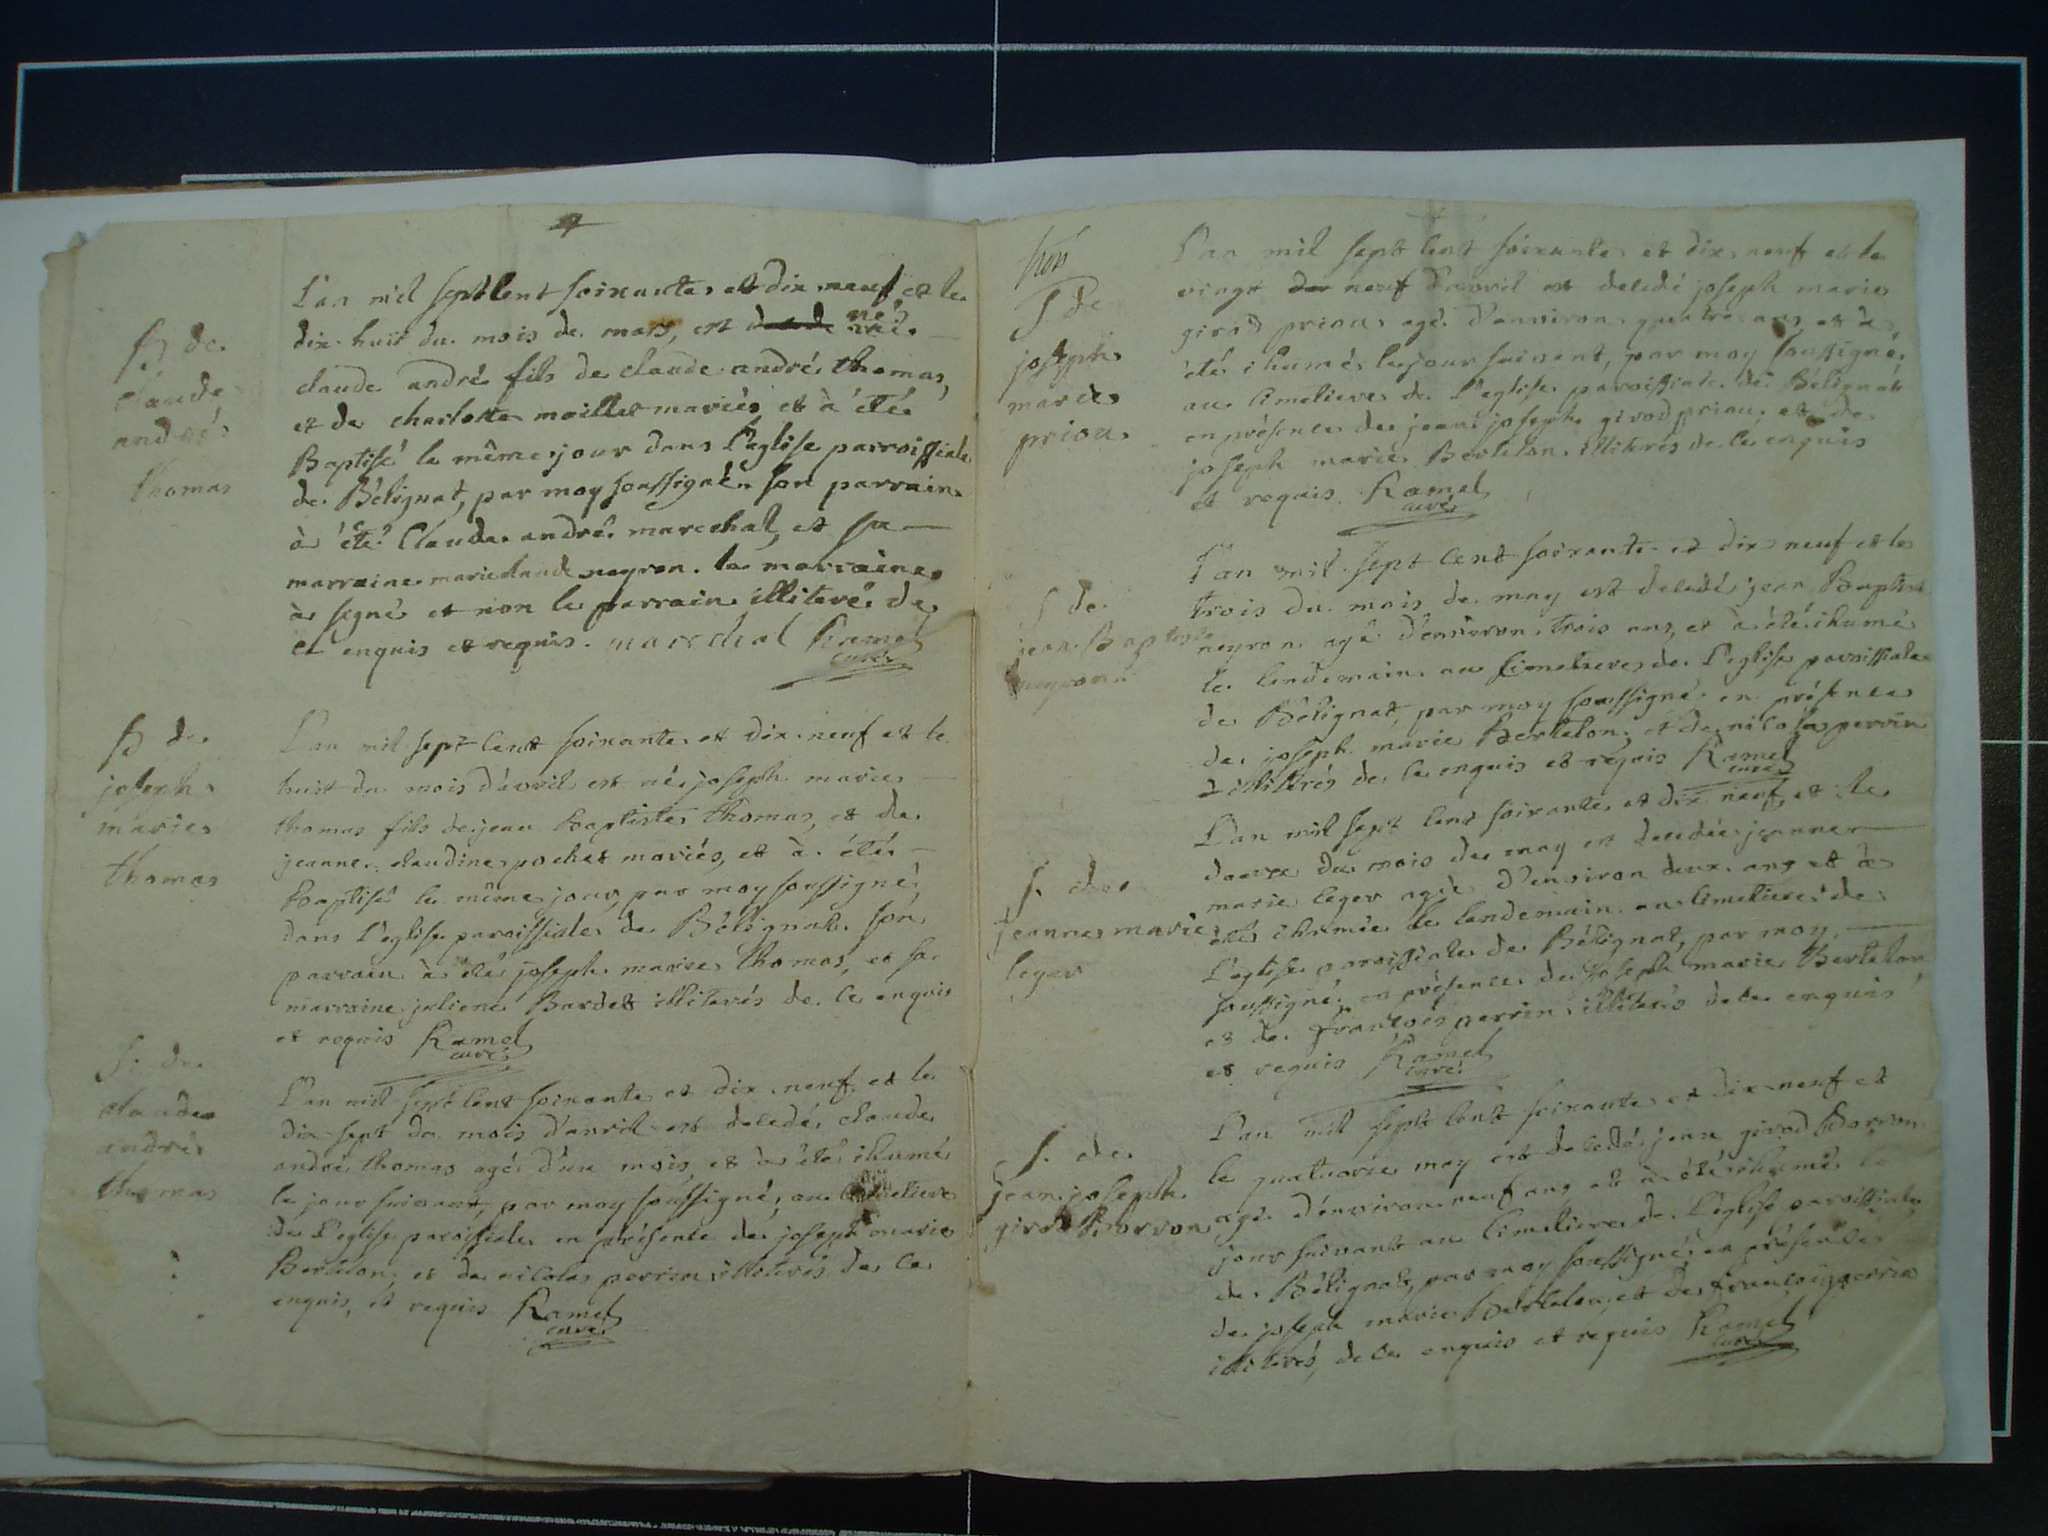 B de
Claude
andré
thomas
L'an mil sept Cent soixante et dix neuf et le
dix huit du mois de mars, est né
claude andré fils de claude andré thomas,
et de charlotte maillet mariés, et à été
Baptisé le même jour dans l'eglise parroissiale
de Bélignat, par moy soussigné. son parrain
à été Claude andré marechal, et sa
marraine marie claude neyron. la marraine
à signé et non le parrain illiteré de
ce enquis et requis. marechal Ramel
curé
B de
joseph
marie
thomas
L'an mil sept Cent soixante et dix neuf et le
huit du mois d'avril est né joseph marie
thomas fils de jean Baptiste thomas, et de
jeanne claudine pochet mariés, et à été
Baptisé le même jour, par moy soussigné,
dans l'eglise paroissiale de Bélignat. son
parrain à été joseph marie thomas, et sa
marraine juliene Bardet illiterés de ce enquis
et requis Ramel
curé
S. de
claude
andré
thomas
L'an mil sept Cent soixante et dix neuf et le
dix sept du mois d'avril est décédé claude
andre thomas agé d'un mois, et à été ihumé
le jour suivant, par moy soussigné, au Cimetiere
de l'eglise paroissiale en présence de joseph marie
Bertelon, et de nicolas perrin illiterés de ce
enquis, et requis Ramel
curé
S de
joseph
marie
priou
L'an mil sept Cent soixante et dix neuf et le
vingt neuf d'avril est décédé joseph marie
girod priou agé d'environ quatre ans et à
été ihumé le jour suivant, par moy soussigné,
au Cimetiere de l'eglise paroissiale de Bélignat
en présence de jean joseph girod priou et de
joseph marie Bertelon illiterés de ce enquis
et requis Ramel
curé
S de
jean Baptiste
neyron
L'an mil sept Cent soixante et dix neuf et le
trois du mois de may est décédé jean Baptiste
neyron agé d'environ trois ans, et à été ihumé
le lendemain au Cimetiere de l'eglise paroissiale
de Bélignat, par moy soussigné en présence
de joseph marie Bertelon, et de nicolas perrin
illiterés de ce enquis et requis Ramel
curé
S. de
jeanne marie
leger
L'an mil sept Cent soixante et dix neuf, et le
douze du mois de may est décédée jeanne
marie leger agée d'environ deux ans et à
été ihumée le lendemain au Cimetiere de
l'eglise paroissiale de Bélignat, par moy
soussigné en présence de joseph marie Bertelon
et de françois perrin illiterés de ce enquis
et requis Ramel
curé
S. de
jean joseph
girod Borron
L'an mil sept Cent soixante et dix neuf et
le quatorze may est décédé jean girod Borron
agé d'environ neuf ans et à été ihumé le
jour suivant au Cimetiere de l'eglise paroissiale
de Bélignat, par moy soussigné, en présence
de joseph marie Bertelon, et de françois perrin
illiterés, de ce enquis et requis Ramel
curé